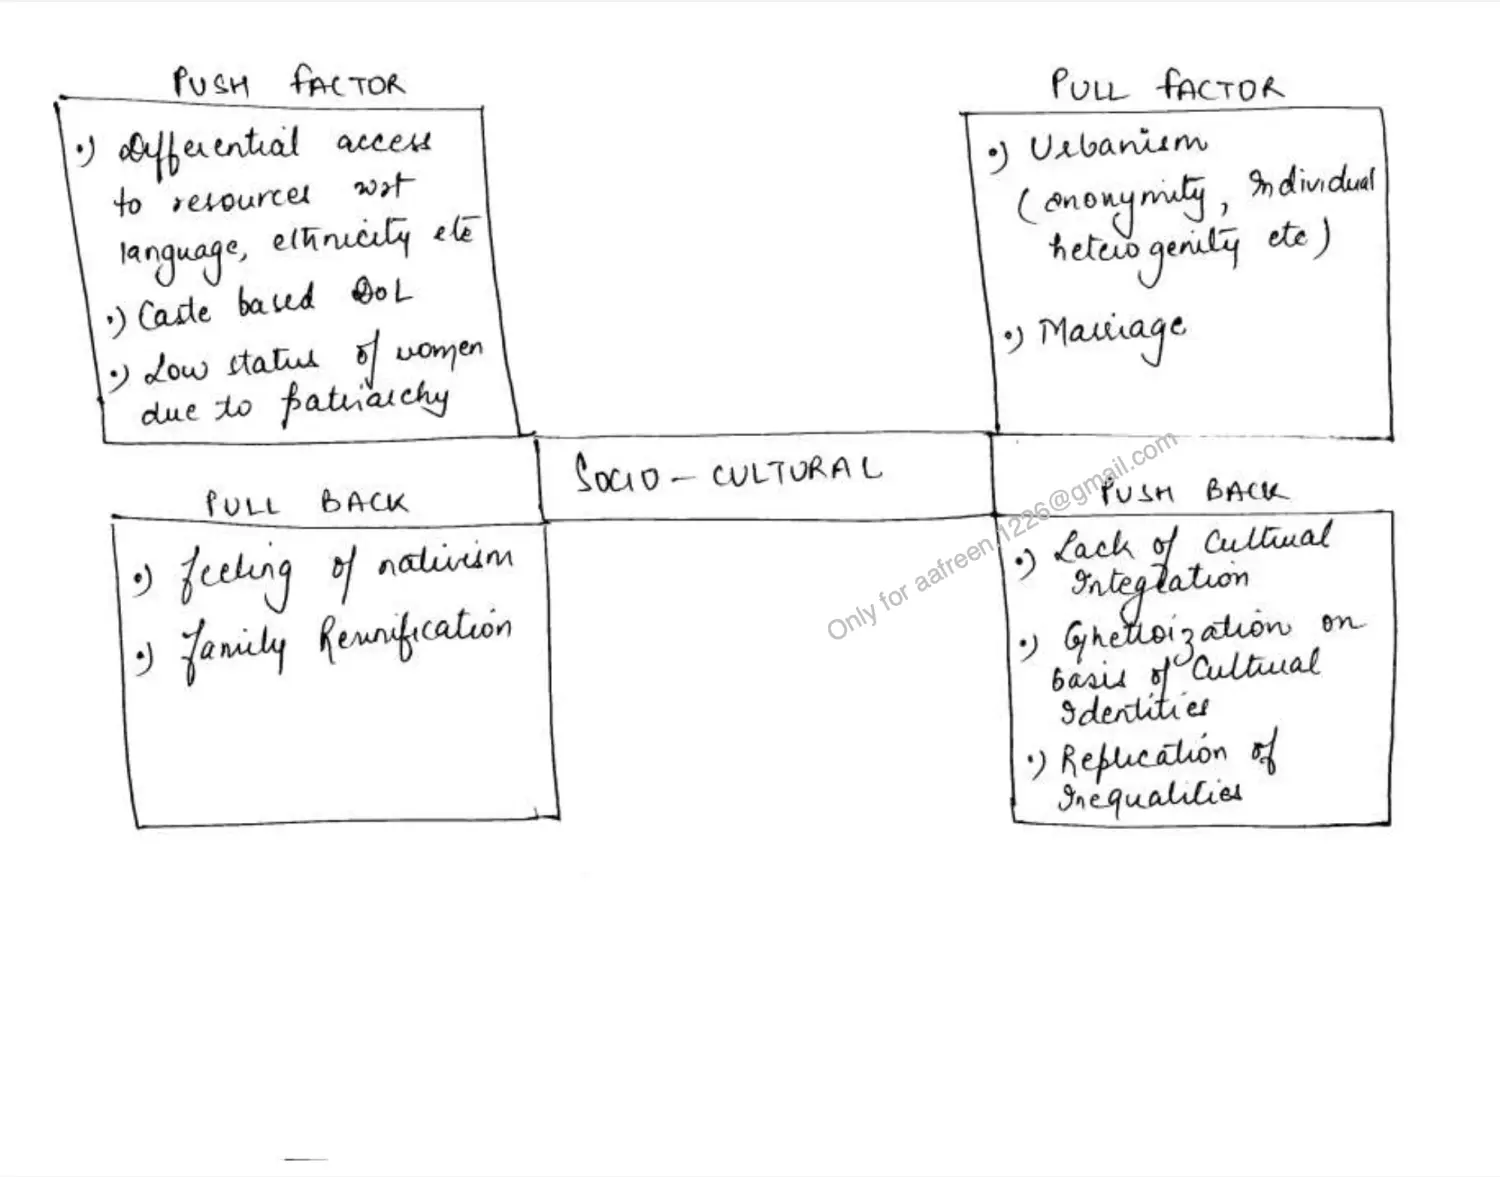 PUSH FACTOR
•) Differential access
to resources wrt
language, ethnicity etc
•) Caste based DoL
•) Low status of women
due to patriarchy
PULL FACTOR
•) Urbanism
(anonymity, Individual
heterogenity etc)
•) Marriage
SOCIO - CULTURAL
PULL BACK
•) feeling of nativism
•) family Reunification
PUSH BACK
•) Lack of Cultural
Integration
•) Ghettoization on
basis of Cultural
Identities
•) Replication of
Inequalities
Only for aafreen.1226@gmail.com